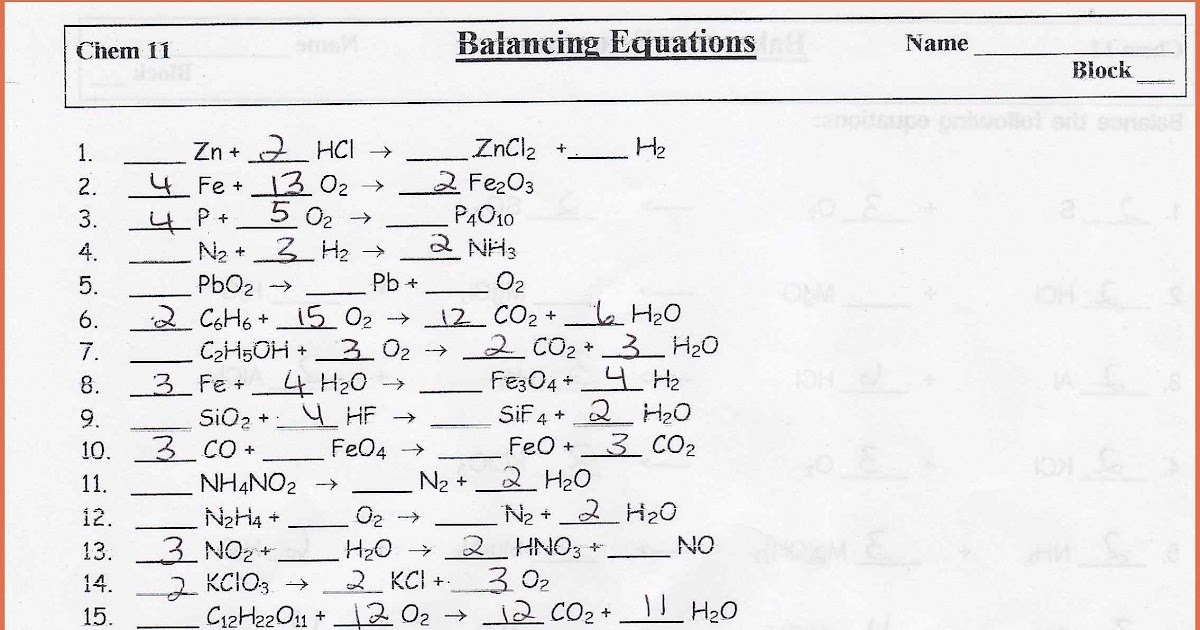 Chem 11 Balancing Equations Name ________
Block ___
1. ____ Zn + 2 HCl → ____ ZnCl2 + ____ H2
2. 4 Fe + 13 O2 → 2 Fe2O3
3. 4 P + 5 O2 → ____ P4O10
4. ____ N2 + 3 H2 → 2 NH3
5. ____ PbO2 → ____ Pb + ____ O2
6. 2 C6H6 + 15 O2 → 12 CO2 + 6 H2O
7. ____ C2H5OH + 3 O2 → 2 CO2 + 3 H2O
8. 3 Fe + 4 H2O → ____ Fe3O4 + 4 H2
9. ____ SiO2 + 4 HF → ____ SiF4 + 2 H2O
10. 3 CO + ____ FeO4 → ____ FeO + 3 CO2
11. ____ NH4NO2 → ____ N2 + 2 H2O
12. ____ N2H4 + ____ O2 → ____ N2 + 2 H2O
13. 3 NO2 + ____ H2O → 2 HNO3 + ____ NO
14. 2 KClO3 → 2 KCl + 3 O2
15. ____ C12H22O11 + 12 O2 → 12 CO2 + 11 H2O